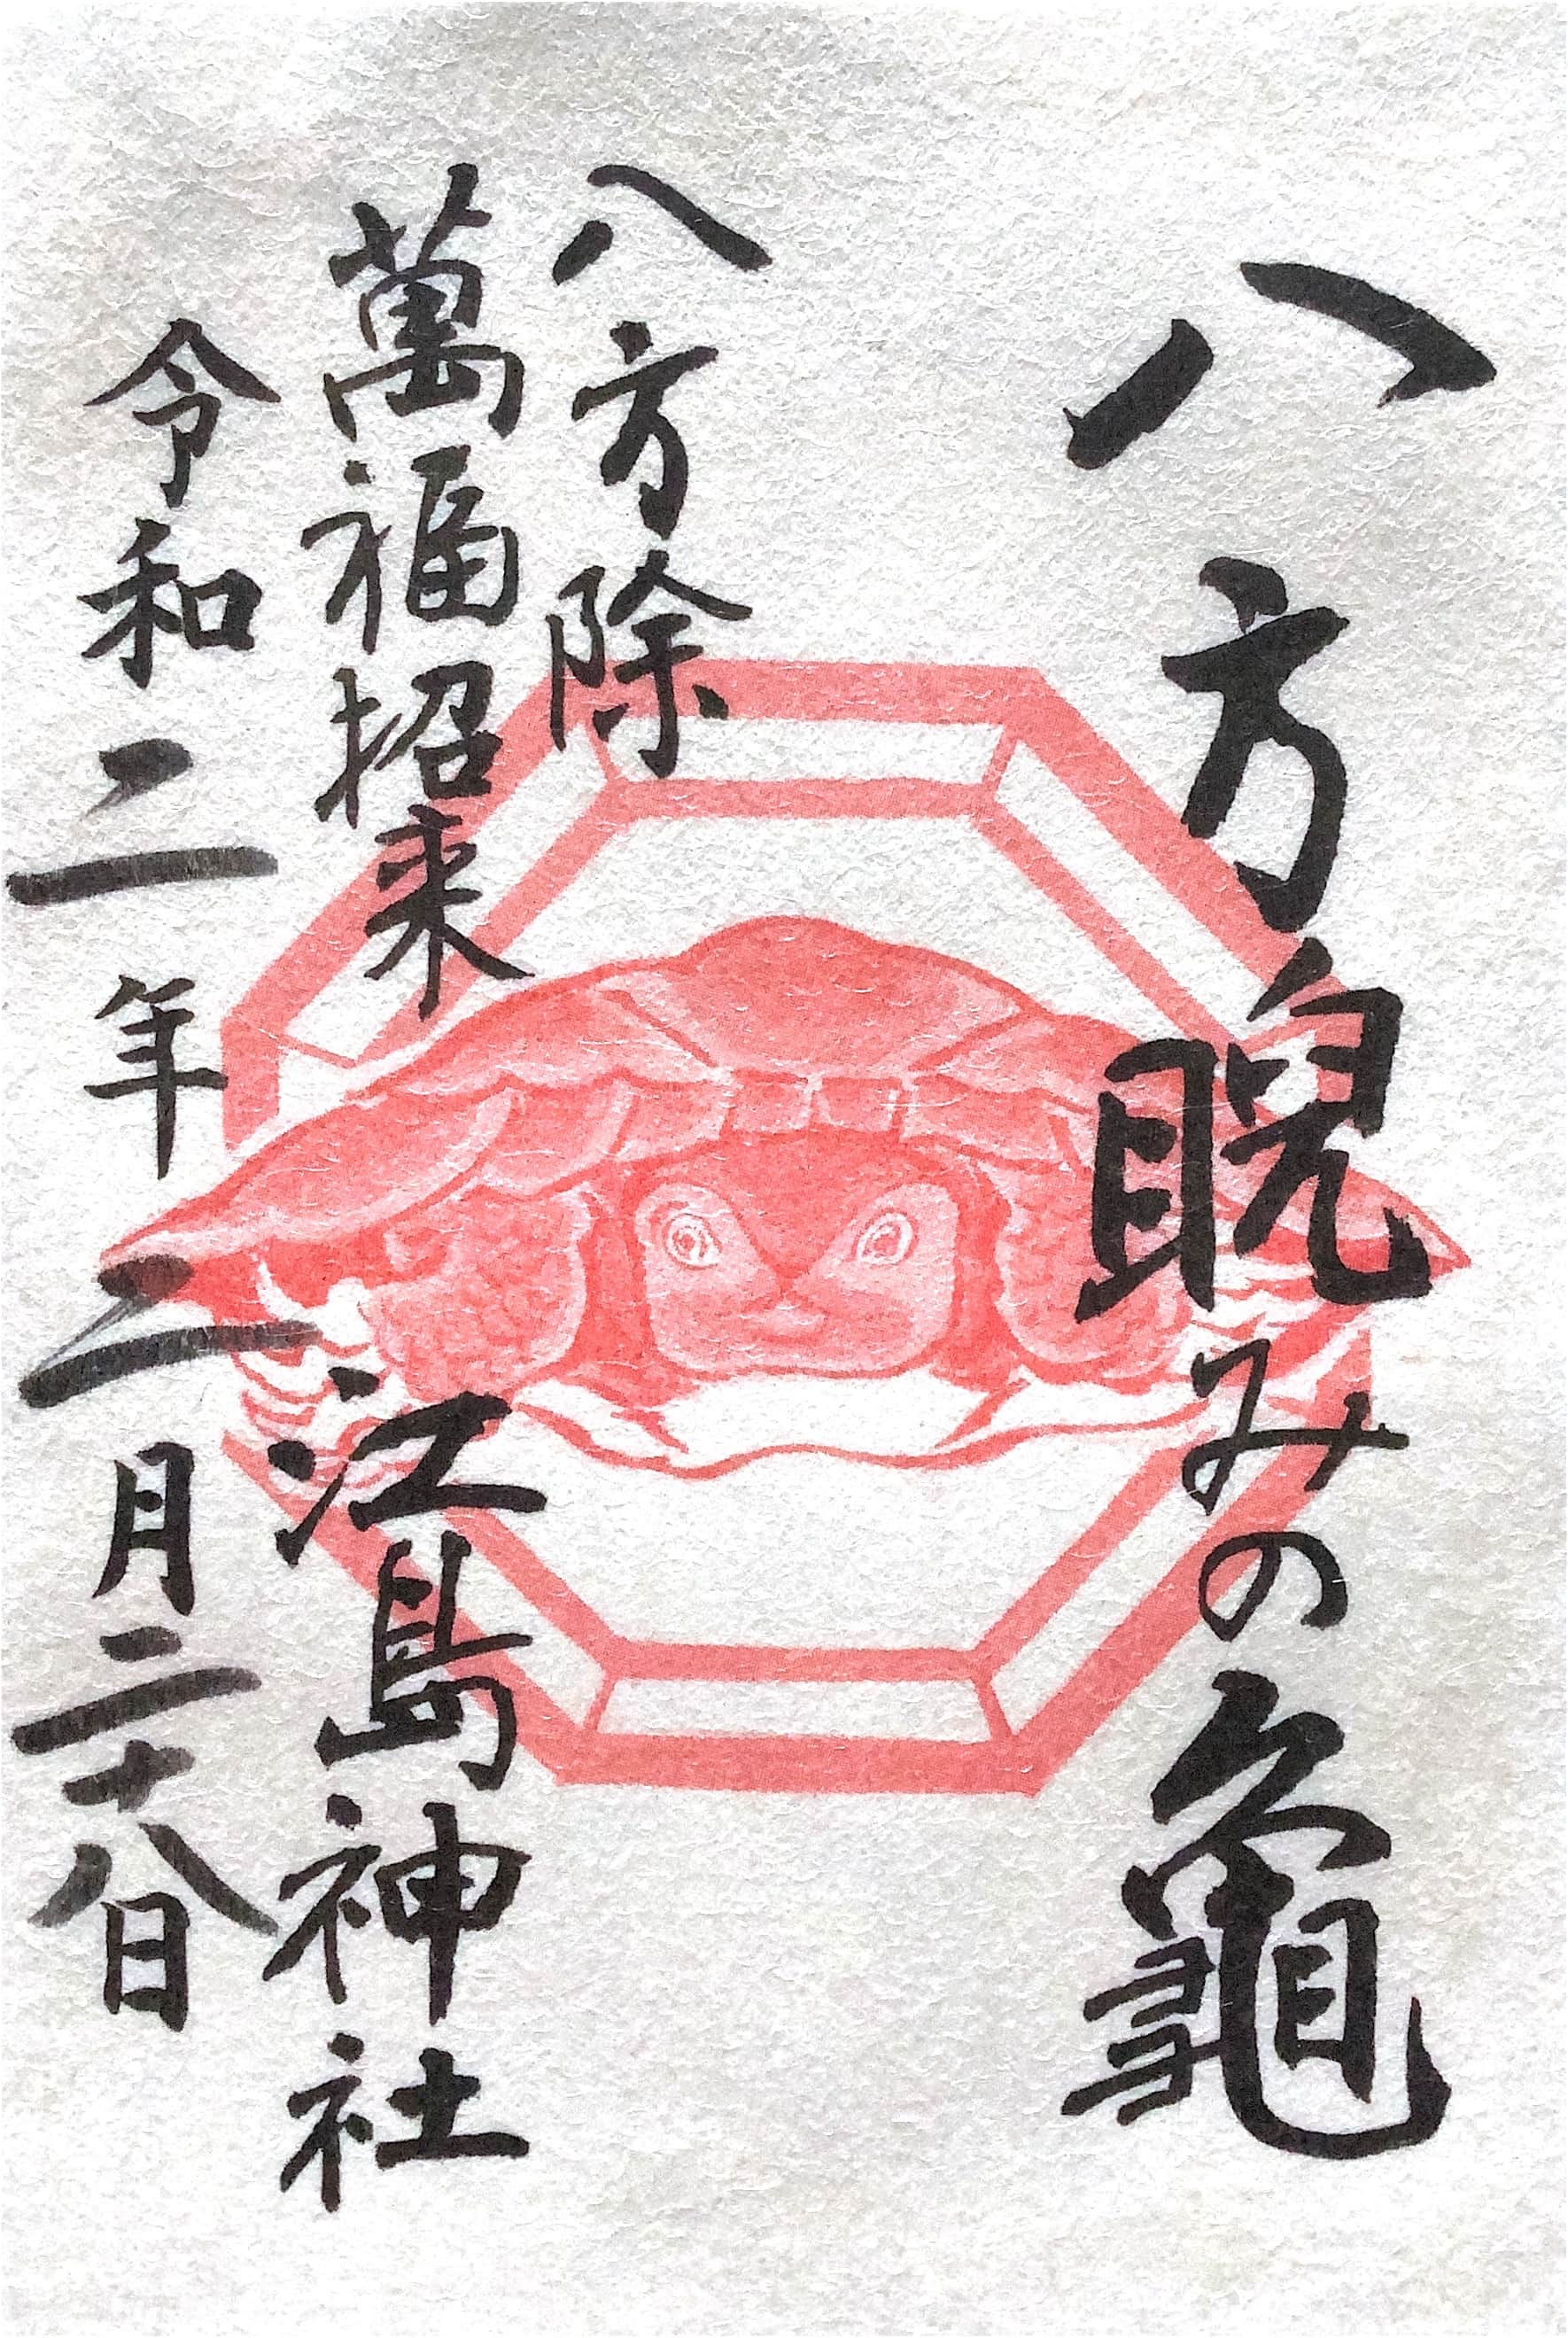 八方睨みの龜
八方除
萬福招来
江島神社
令和二年二月二十八日